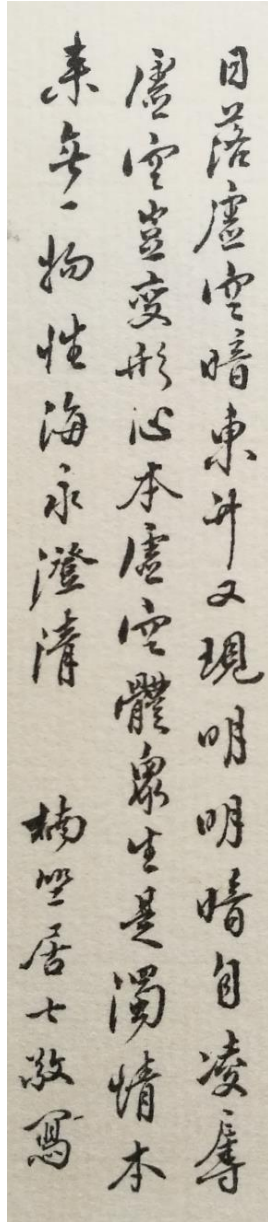 日落虛空暗東升又現明明暗自凌辱
虛空豈變形心本虛空體衆生是濁情本
来無一物性海永澄清
楠竺居士敬寫